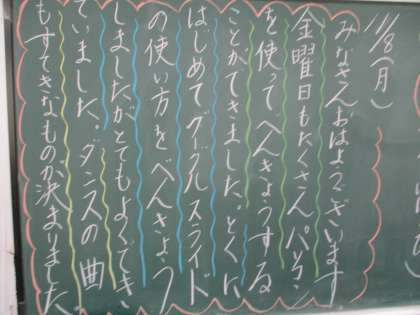 11/8(月)
みなさんおはようございます。
金曜日もたくさんパソコン
を使ってべんきょうする
ことができました。とくに
はじめてグーグルスライド
の使い方をべんきょう
しましたがとてもよくでき
ていました。ダンスの曲
もすてきなものが決まりました。